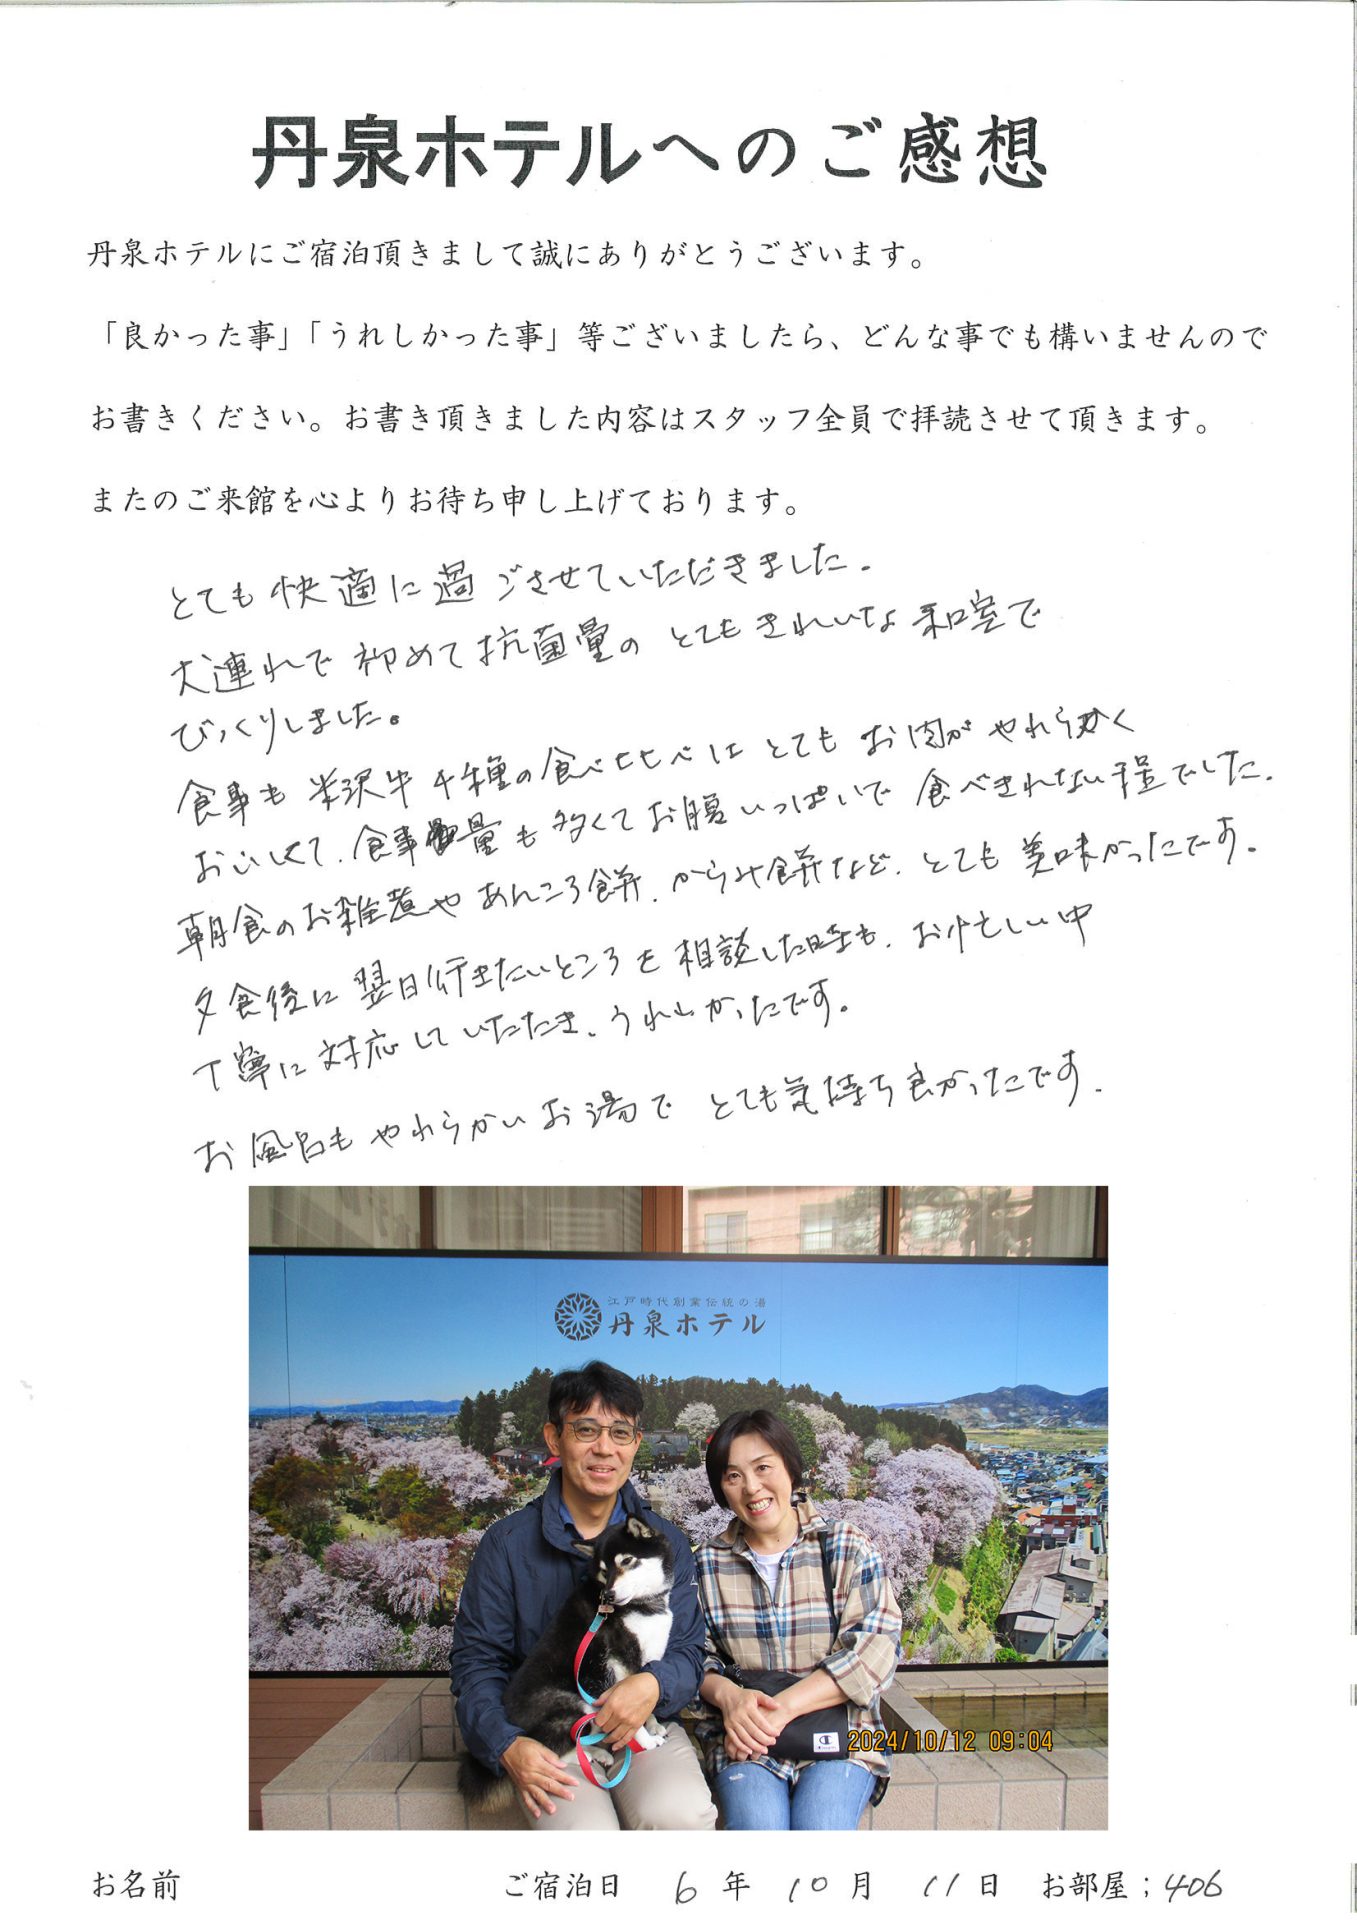 丹泉ホテルへのご感想
丹泉ホテルにご宿泊頂きまして誠にありがとうございます。
「良かった事」「うれしかった事」等ございましたら、どんな事でも構いませんので
お書きください。お書き頂きました内容はスタッフ全員で拝読させて頂きます。
またのご来館を心よりお待ち申し上げております。
とても快適に過ごさせていただきました。
犬連れで初めて抗菌畳のとてもきれいな和室で
びっくりしました。
食事も米沢牛 種の食べ比べはとてもお肉がやわらかく
おいしくて、食事量も多くてお腹いっぱいで食べきれない程でした。
朝食のお雑煮やあんころ餅、からみ餅など、とても美味かったです。
夕食後に翌日行きたいところを相談した時も、お忙しい中
丁寧に対応していただき、うれしかったです。
お風呂もやわらかいお湯でとても気持ち良かったです。
江戸時代創業伝統の湯
丹泉ホテル
2024/10/12 09:04
お名前 ご宿泊日 6年 10月 11日 お部屋;406